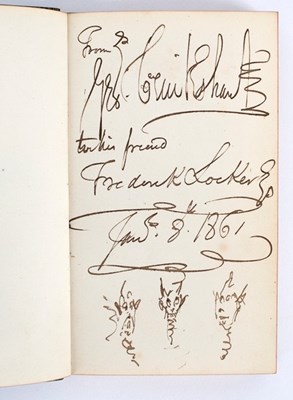 From
Geo. Cruikshank
to his friend
Frederick Locker Esq
Jany. 8. 1861